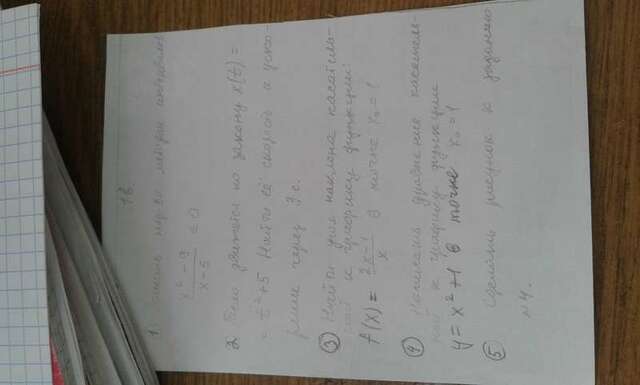 1в.
1. Решить нер-во методом интервалов
x² - 9
x - 5 ≤ 0
2. Тело движется по закону x(t) =
= t² + 5 Найти её скорость и уско-
рение через 3 с.
③ Найти угол наклона касатель-
ной к графику функции:
f(x) = 2x-1 / x в точке x₀ = 1
④ Написать уравнение касатель-
ной к графику функции
y = x² + 1 в точке x₀ = 1
⑤ Сделать рисунок к заданию
№4.